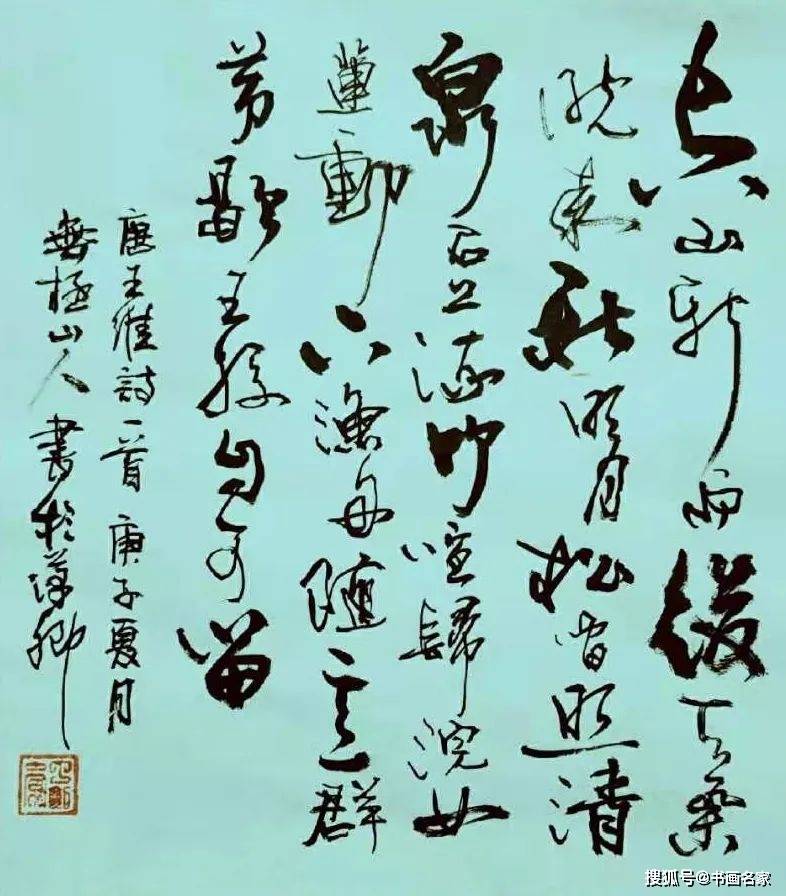 空山新雨後天氣
晚来秋明月松間照清
泉石上流竹喧歸浣女
蓮動下漁舟随意群
芳歇王孫自可留
唐王維詩一首 庚子夏月
無極山人 書於漢卿
搜狐号@书画名家